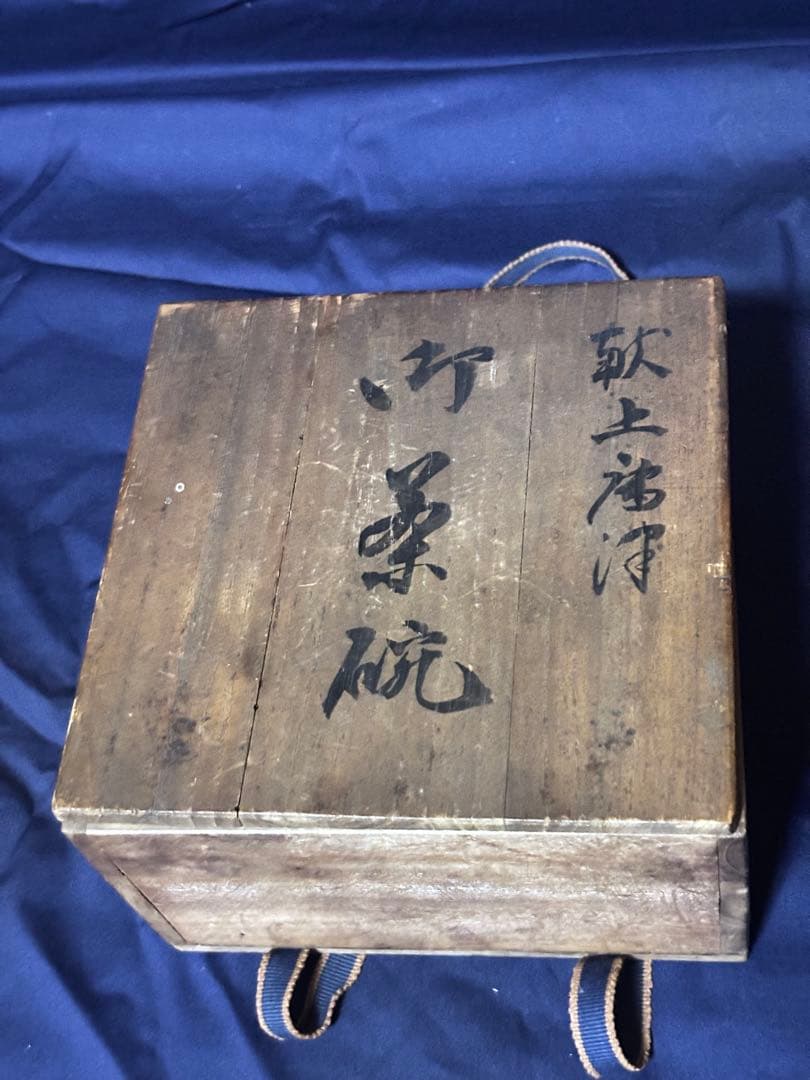 献上唐津
御茶碗